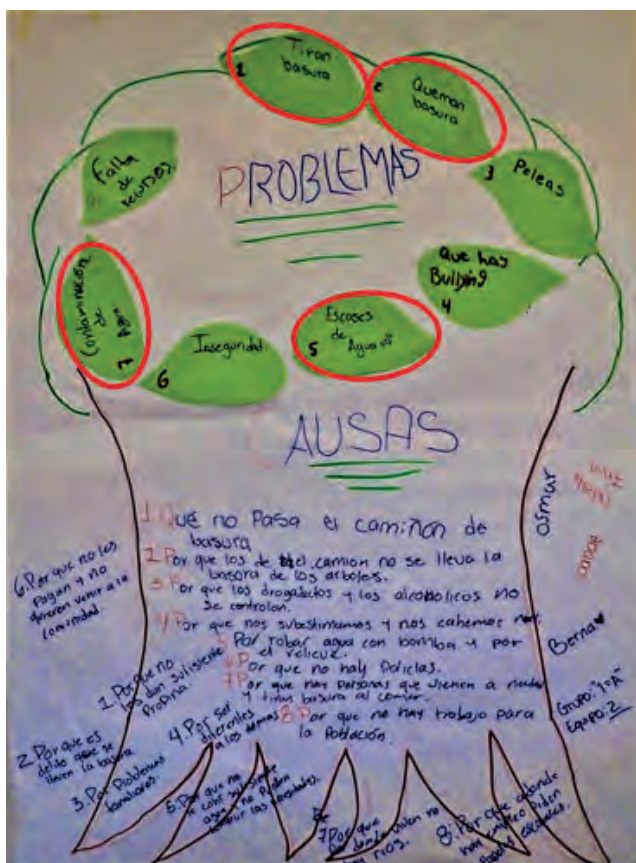 Tiran
basura
1
Queman
basura
2
Peleas
3
Que hay
Bullying
4
Escases
de
Agua
5
Inseguridad.
6
Contaminación
de
7
Falta
de
recursos
PROBLEMAS
AUSAS
1 Que no Pasa el camiñon de
basura
2 Por que los de el camion no se lleva la
basora de los arboles.
3 Por que los drogadictos y los alcoholicos no
se controlan.
4 Por que nos subestimamos y nos cahemos
5 Por robar agua con bomba y por
el relieve.
6 Por que no hay Policias.
7 Por que hay personas que vienen a nadar
y tiran basura al comer.
8 Por que no hay trabajo para
la Población.
6. Por que no les
Pagan y no
quieren venir a la
comunidad
1. Porque no
les dan suficiente
Propina.
2. Por que es
delito que se
lleven la basura
3. Por Problemas
familiares.
4. Por ser
diferentes
a los demas
5. Por que no
agua y no Pueden
7 Por que
donde viven no
rios.
8. Por que adonde
hay empleo piden
osmar
Berna
Grupo: "1=A"
Equipo: 2